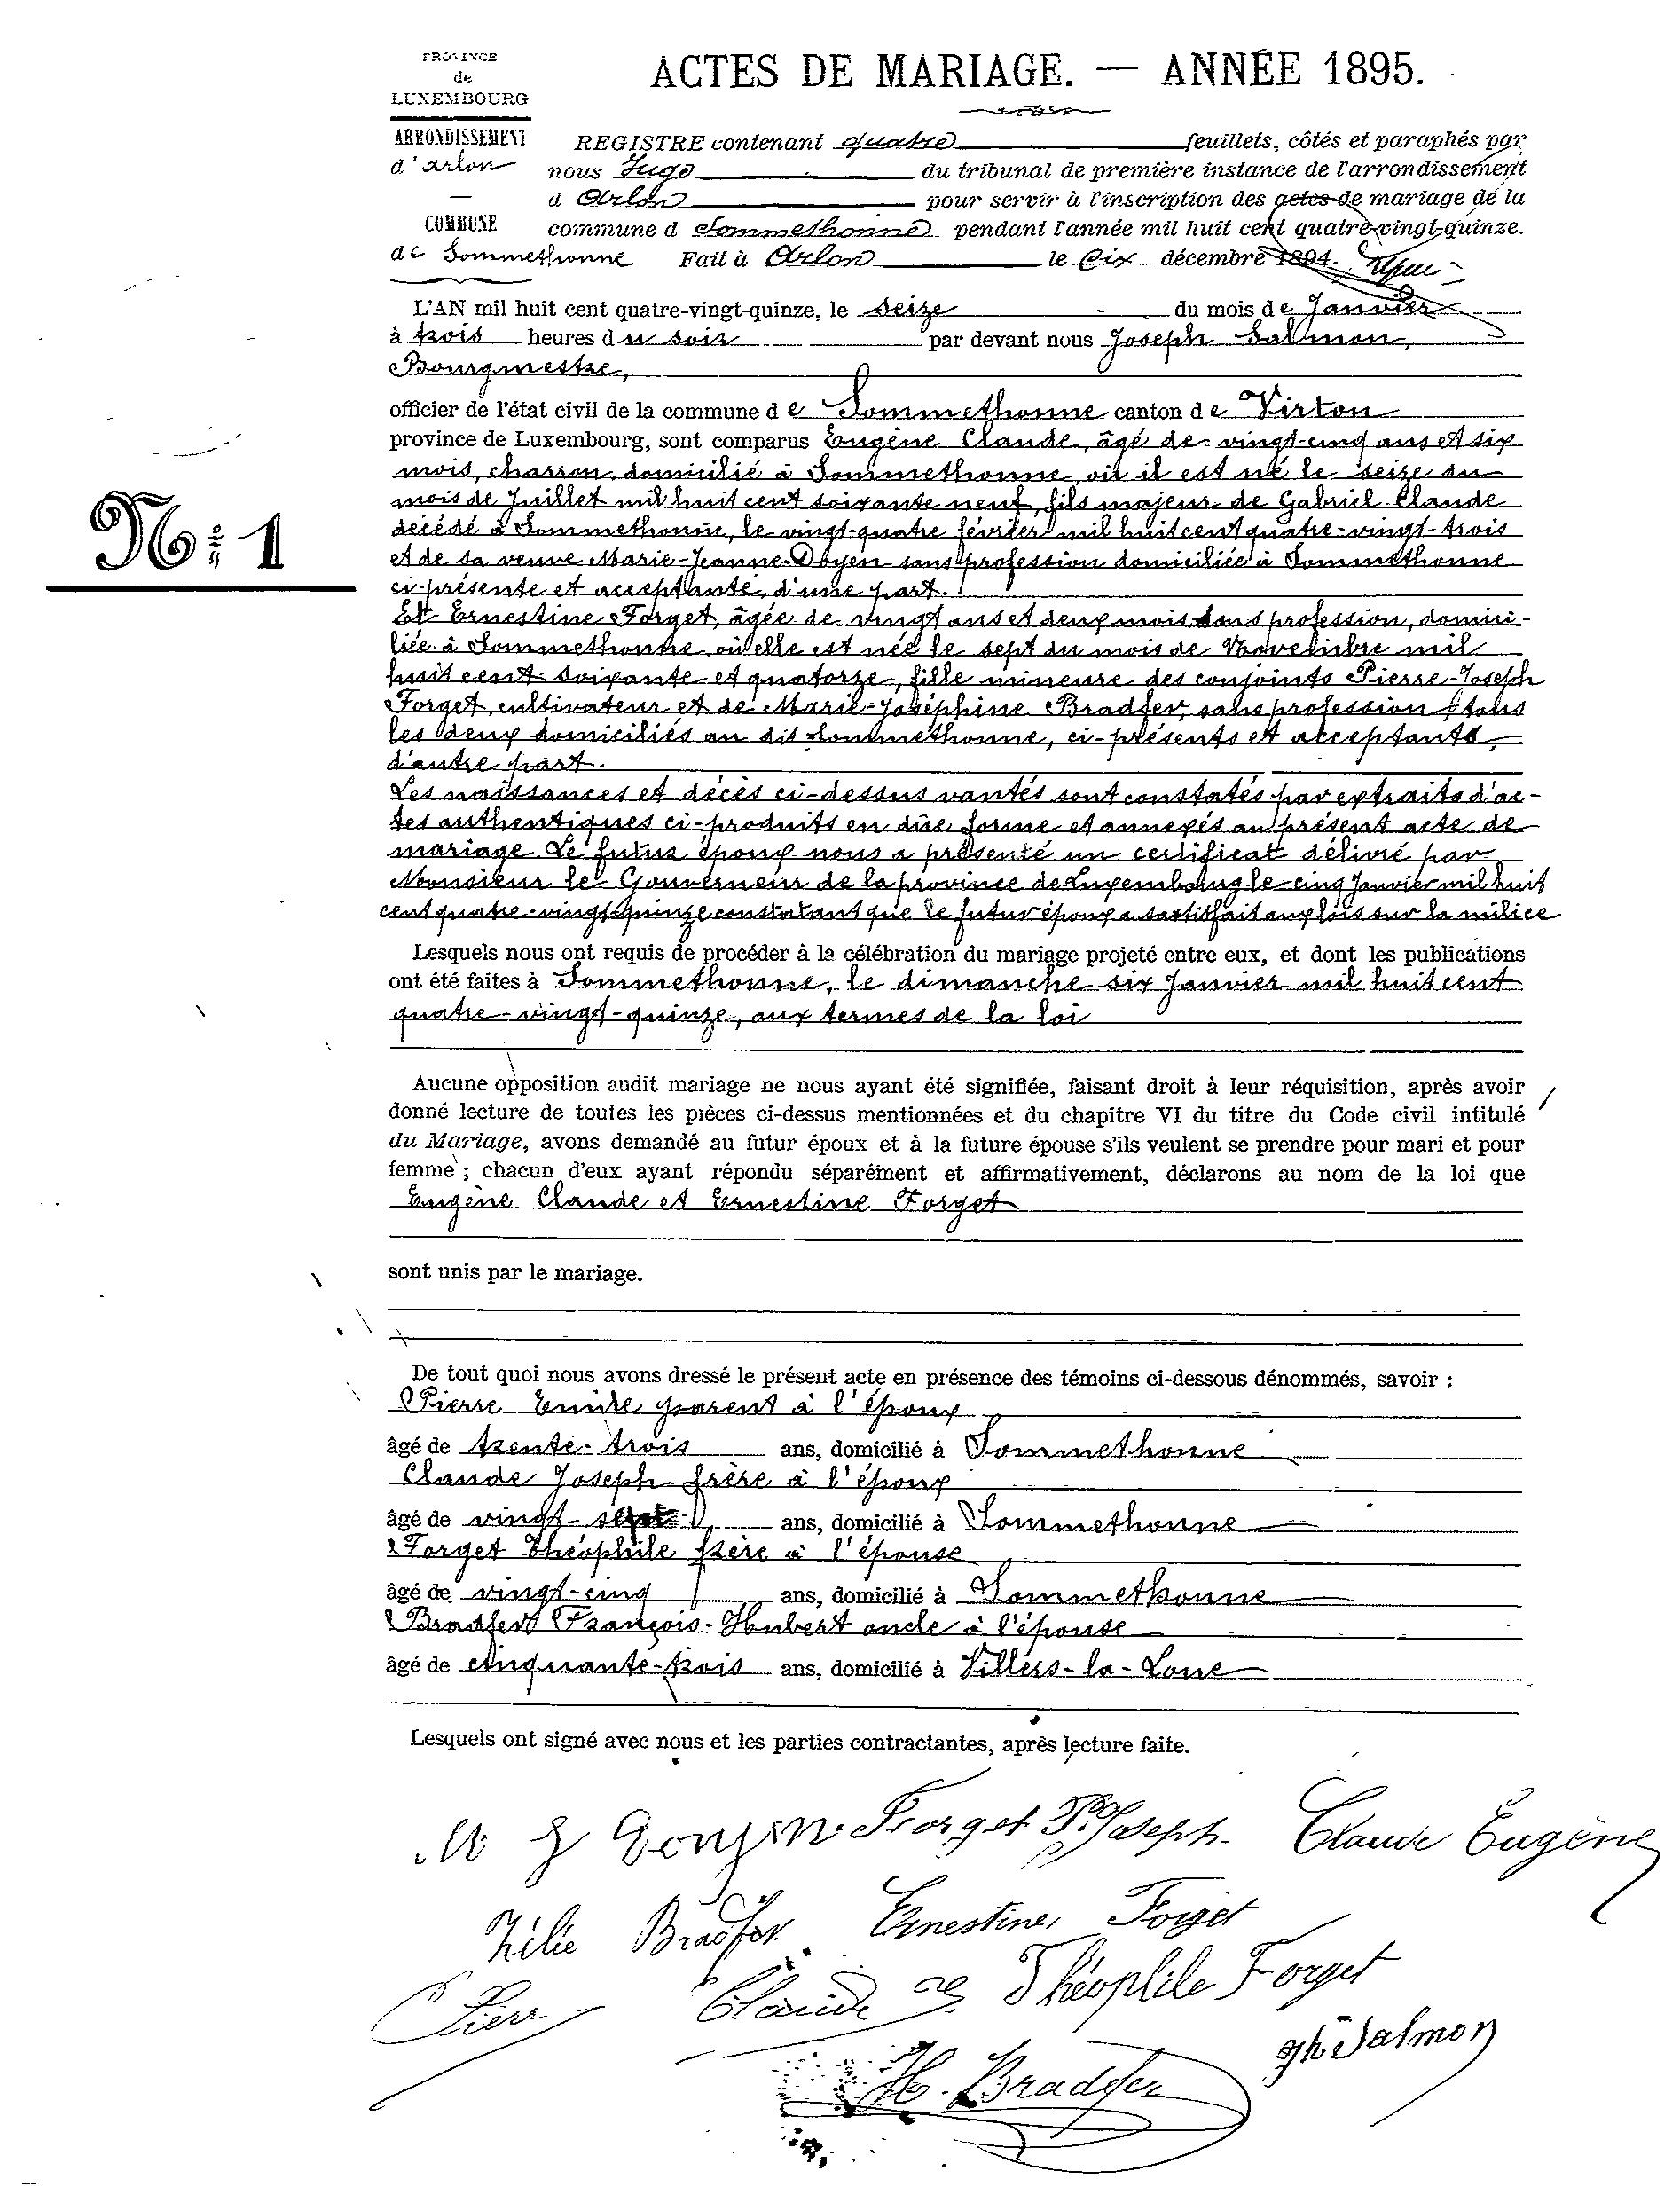 PROVINCE
de
LUXEMBOURG
ARRONDISSEMENT
d'Arlon
COMMUNE
de Sommethonne
ACTES DE MARIAGE. — ANNÉE 1895.
REGISTRE contenant quatre feuillets, côtés et paraphés par
nous Juge du tribunal de première instance de l'arrondissement
d Arlon pour servir à l'inscription des actes de mariage de la
commune d Sommethonne pendant l'année mil huit cent quatre-vingt-quinze.
Fait à Arlon le dix décembre 1894.
N° 1
L'AN mil huit cent quatre-vingt-quinze, le seize du mois de Janvier
à trois heures du soir par devant nous Joseph Salmon,
Bourgmestre,
officier de l'état civil de la commune de Sommethonne canton de Virton
province de Luxembourg, sont comparus Eugène Claude, âgé de vingt-cinq ans et six
mois, charron, domicilié à Sommethonne, où il est né le seize du
mois de Juillet mil huit cent soixante neuf, fils majeur de Gabriel Claude
décédé à Sommethonne, le vingt-quatre février mil huit cent quatre-vingt-trois
et de sa veuve Marie-Jeanne Doyen sans profession domiciliée à Sommethonne
ci-présente et acceptante, d'une part.
Et Ernestine Forget, âgée de vingt ans et deux mois, sans profession, domici-
liée à Sommethonne, où elle est née le sept du mois de Novembre mil
huit cent soixante et quatorze, fille mineure des conjoints Pierre-Joseph
Forget, cultivateur et de Marie-Joséphine Bradfer, sans profession, tous
les deux domiciliés au dit Sommethonne, ci-présents et acceptants,
d'autre part.
Les naissances et décès ci-dessus vantés sont constatés par extraits d'ac-
tes authentiques ci-produits en dûe forme et annexés au présent acte de
mariage. Le futur époux nous a présenté un certificat délivré par
Monsieur le Gouverneur de la province de Luxembourg le cinq Janvier mil huit
cent quatre-vingt-quinze constatant que le futur époux a satisfait aux lois sur la milice
Lesquels nous ont requis de procéder à la célébration du mariage projeté entre eux, et dont les publications
ont été faites à Sommethonne, le dimanche six Janvier mil huit cent
quatre-vingt-quinze, aux termes de la loi
Aucune opposition audit mariage ne nous ayant été signifiée, faisant droit à leur réquisition, après avoir
donné lecture de toutes les pièces ci-dessus mentionnées et du chapitre VI du titre du Code civil intitulé
du Mariage, avons demandé au futur époux et à la future épouse s'ils veulent se prendre pour mari et pour
femme ; chacun d'eux ayant répondu séparément et affirmativement, déclarons au nom de la loi que
Eugène Claude et Ernestine Forget
sont unis par le mariage.
De tout quoi nous avons dressé le présent acte en présence des témoins ci-dessous dénommés, savoir :
Pierre Emile parent à l'époux
âgé de trente-trois ans, domicilié à Sommethonne
Claude Joseph frère à l'époux
âgé de vingt-sept ans, domicilié à Sommethonne
Forget Théophile frère à l'épouse
âgé de vingt-cinq ans, domicilié à Sommethonne
Bradfer François-Hubert oncle à l'épouse
âgé de cinquante-trois ans, domicilié à Villers-la-Loue
Lesquels ont signé avec nous et les parties contractantes, après lecture faite.
M J Doyen Forget P. Joseph Claude Eugène
Zélie Bradfer Ernestine Forget
Pierr Claude Théophile Forget
H. Bradfer Jph Salmon